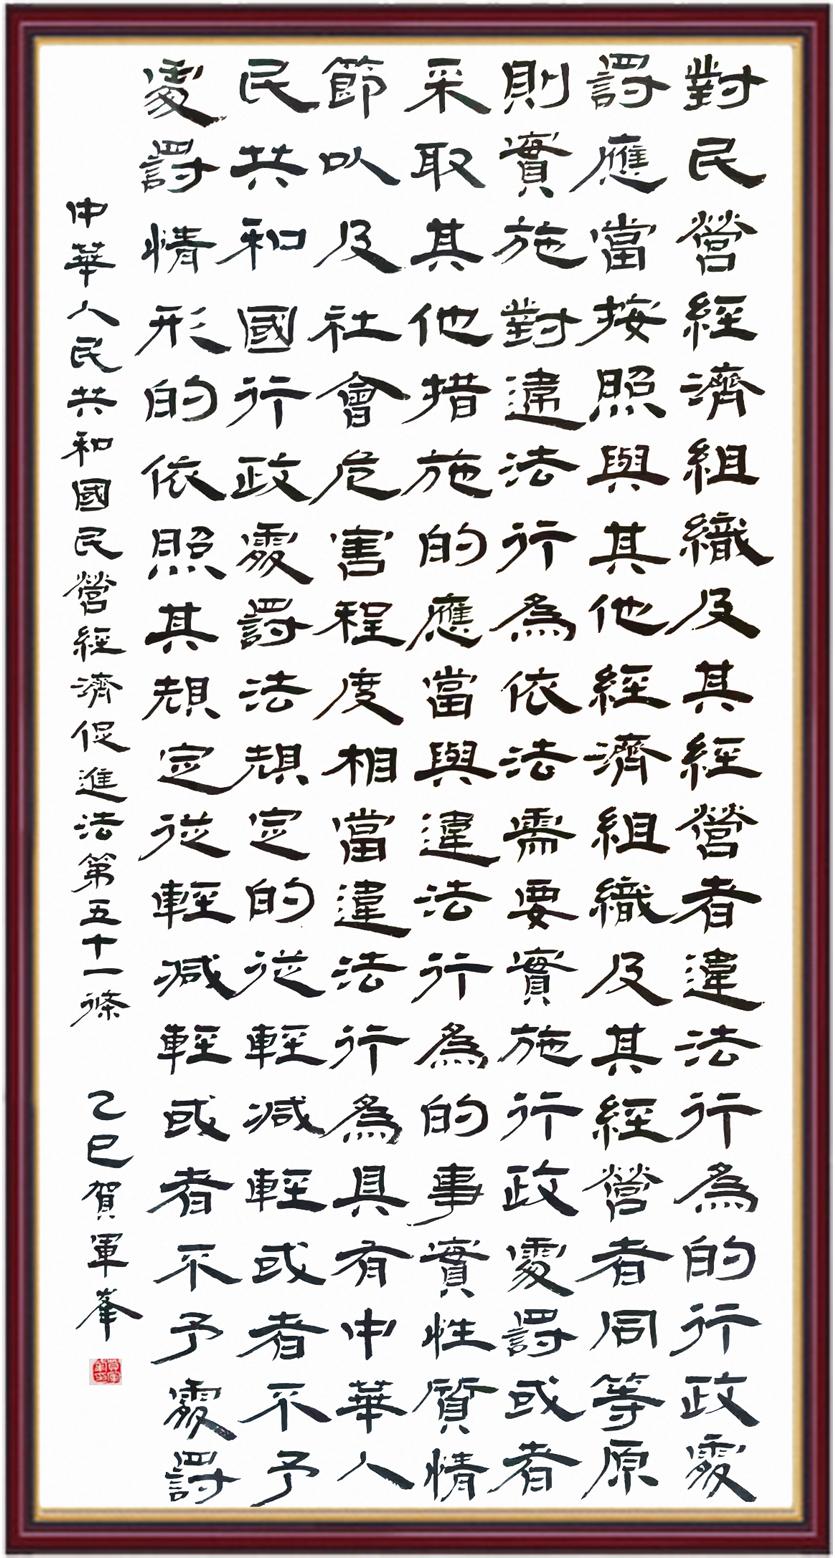 對民營經濟組織及其經營者違法行為的行政處
罰應當按照與其他經濟組織及其經營者同等原
則實施對違法行為依法需要實施行政處罰或者
采取其他措施的應當與違法行為的事實性質情
節以及社會危害程度相當違法行為具有中華人
民共和國行政處罰法規定的從輕減輕或者不予
處罰情形的依照其規定從輕減輕或者不予處罰
中華人民共和國民營經濟促進法第五十一條 乙巳賀軍峯